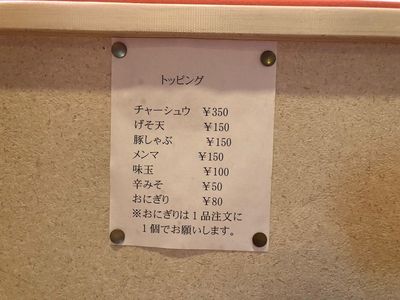 トッピング
チャーシュウ ￥350
げそ天 ￥150
豚しゃぶ ￥150
メンマ ￥150
味玉 ￥100
辛みそ ￥50
おにぎり ￥80
※おにぎりは１品注文に
１個でお願いします。